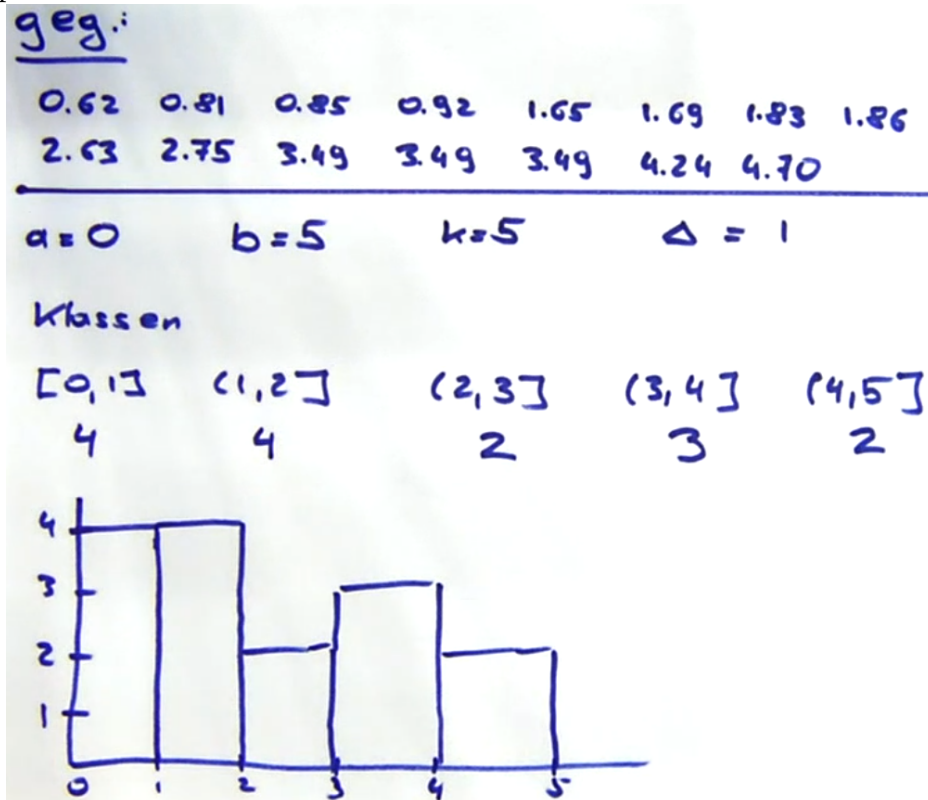 geg.:
0.62 0.81 0.85 0.92 1.65 1.69 1.83 1.86
2.63 2.75 3.49 3.49 3.49 4.24 4.70
a = 0 b = 5 k = 5 Δ = 1
Klassen
[0,1] (1,2] (2,3] (3,4] (4,5]
4 4 2 3 2
4
3
2
1
0 1 2 3 4 5